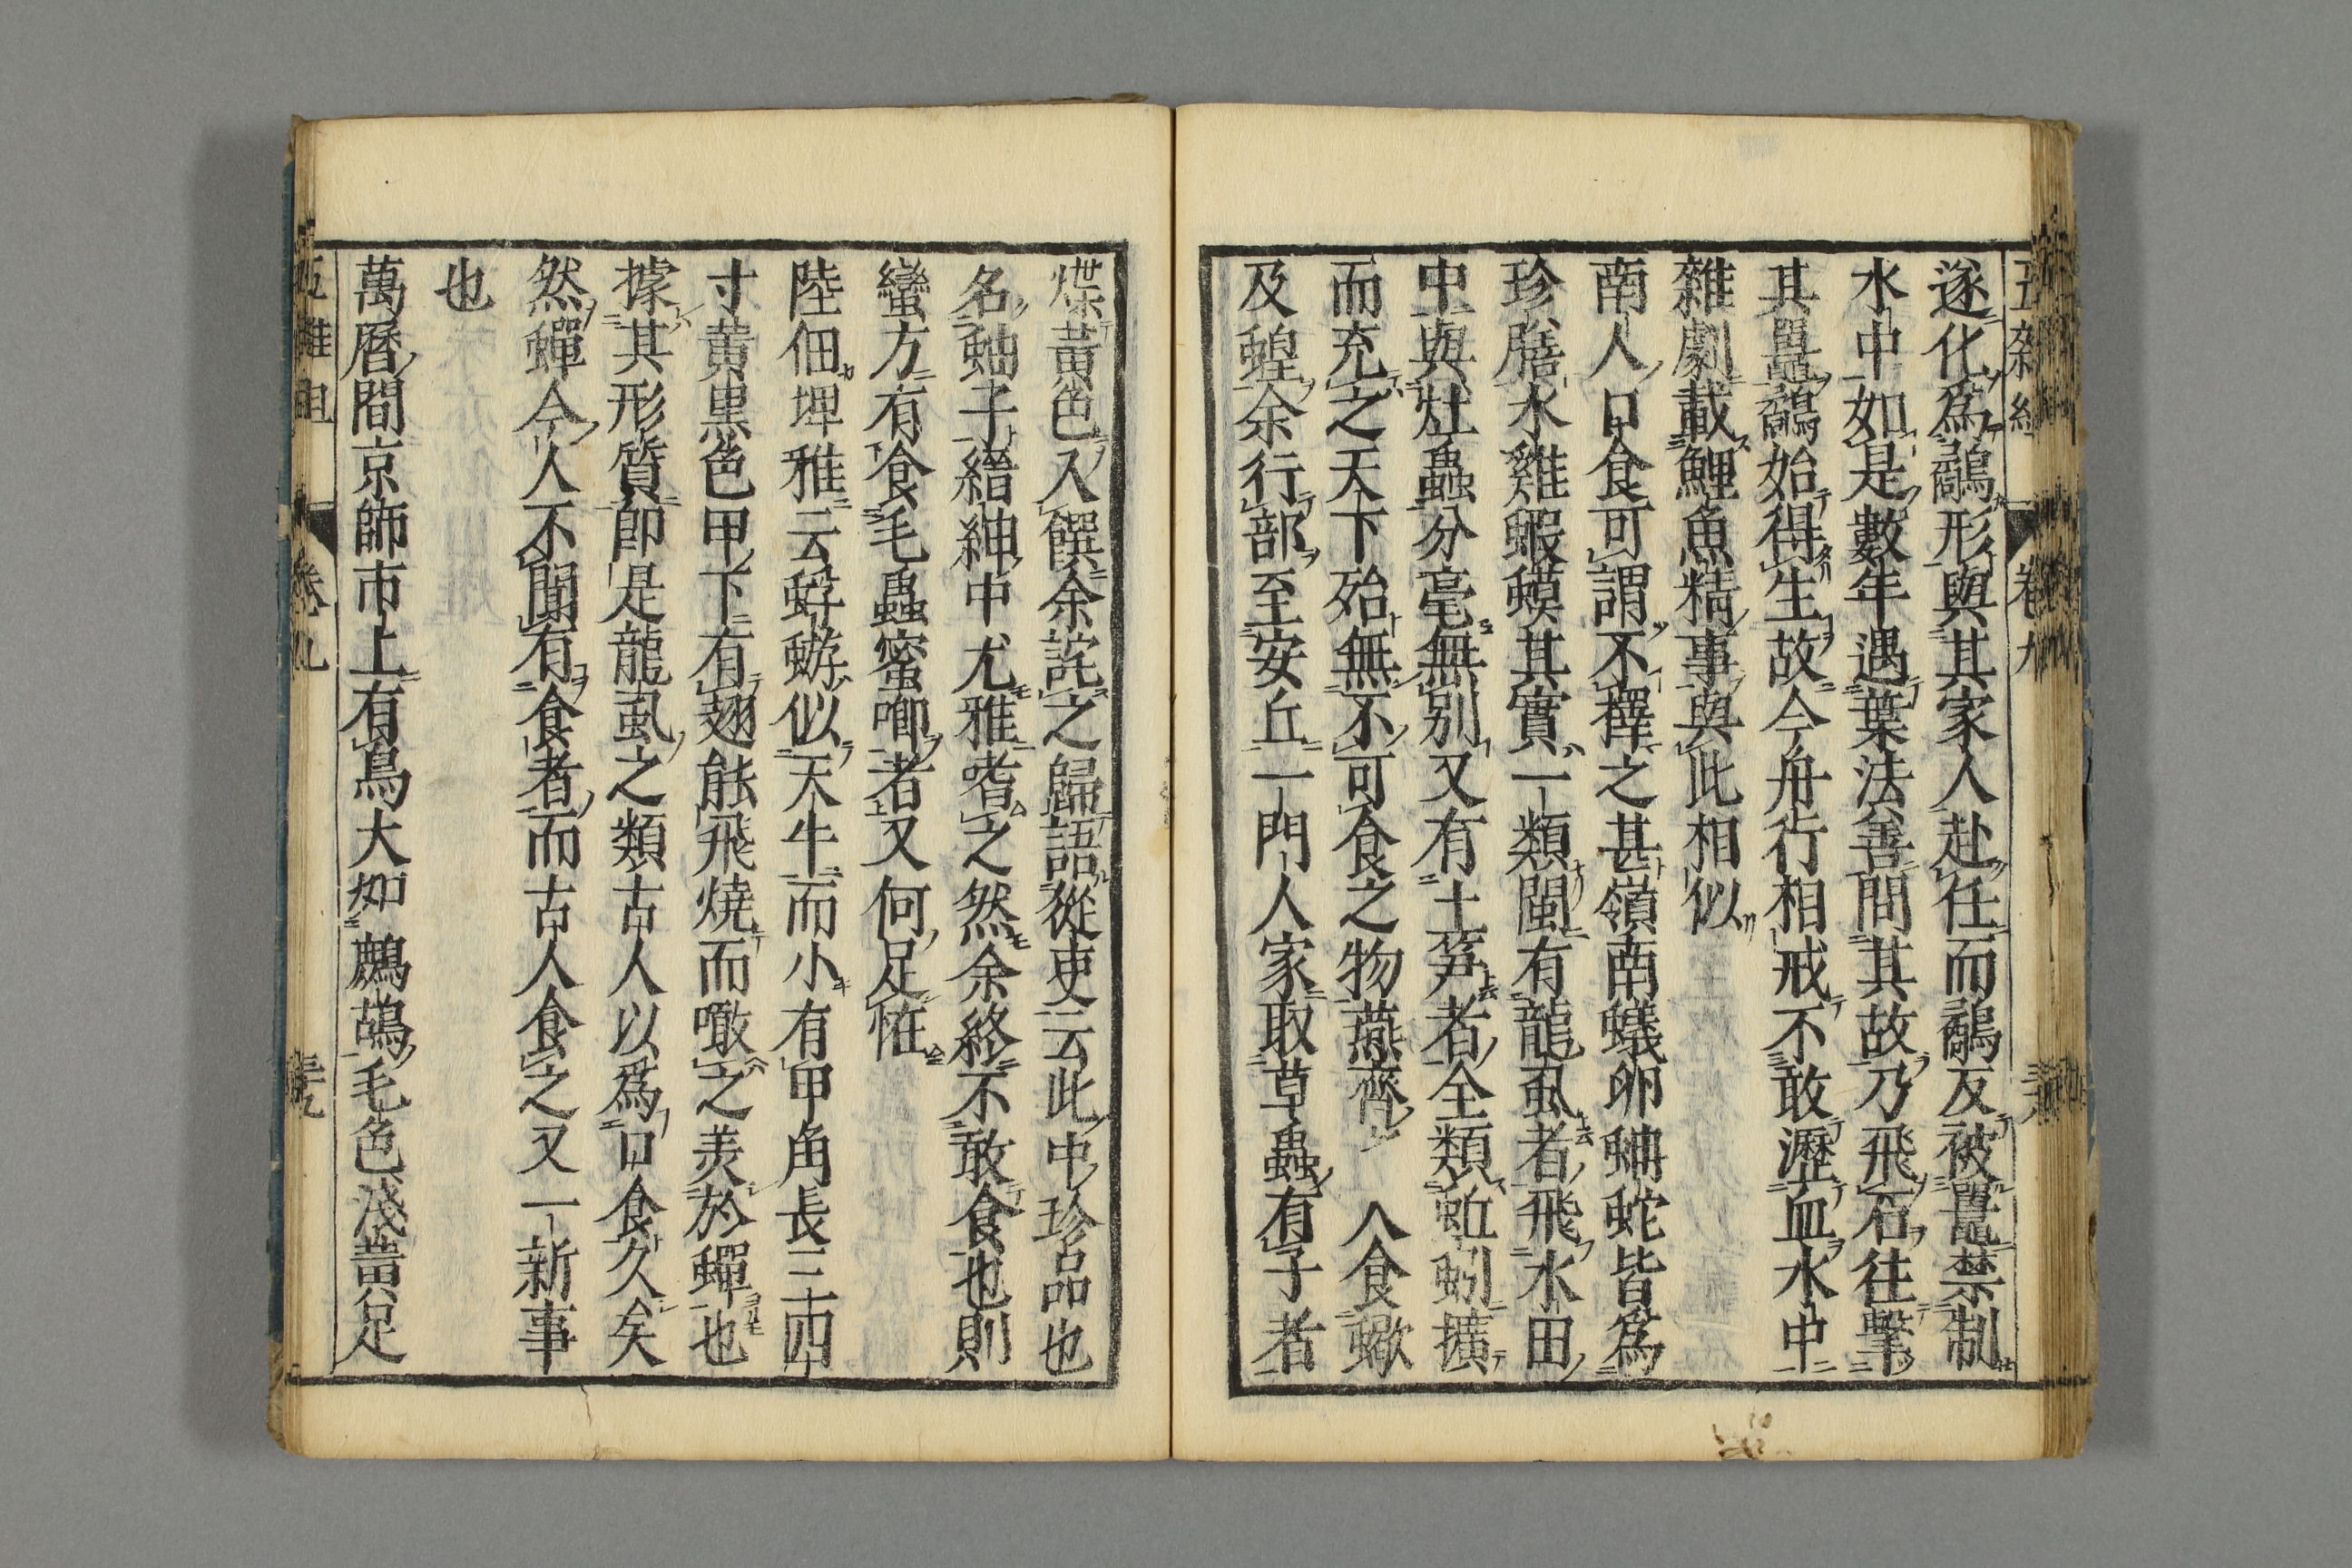 遂化爲鷸形與其家人赴任而鷸反被鼉禁制
水中如是數年遇葉法善問其故乃飛石往擊
其鼉鷸始得生故今舟行相戒不敢瀝血水中
雜劇載鯉魚精事與此相似
南人口食可謂不擇之甚嶺南蟻卵蚺蛇皆爲
珍膳水雞蝦蟆其實一類閩有龍虱者飛水田
中與灶蟲分毫無別又有土笋者全類蚯蚓擴
而充之天下殆無不可食之物燕齊
人食蠍
及蝗余行部至安丘一門人家取草蟲有子者
煠黃色入饌余詫之歸語從吏云此中珍品也
名蚰子縉紳中尤雅嗜之然余終不敢食也則
蠻方有食毛蟲蜜唧者又何足恠
陸佃埤雅云蜉蝣似天牛而小有甲角長三四
寸黃黑色甲下有翅能飛燒而噉之美於蟬也
據其形質即是龍虱之類古人以爲口食久矣
然蟬今人不聞有食者而古人食之又一新事
也
萬曆間京師市上有鳥大如鷓鴣毛色淺黃足
五雜俎
卷九